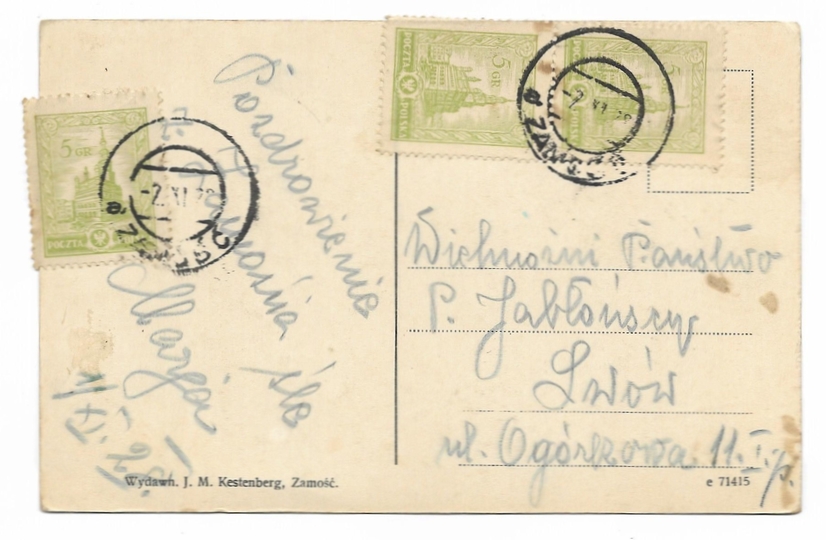 Pozdrowienia
z Zamościa śle
Marja
1/XI. 28.
5 GR
POCZTA POLSKA
5 GR
POCZTA POLSKA
5 GR
POCZTA
ZAMOŚĆ
-2.XI.28
ZAMOŚĆ
-2.XI.28
Wielmożni Państwo
P. Jabłońscy
Lwów
ul. Ogórkowa 11. I. p.
Wydawn. J. M. Kestenberg, Zamość.
e 71415